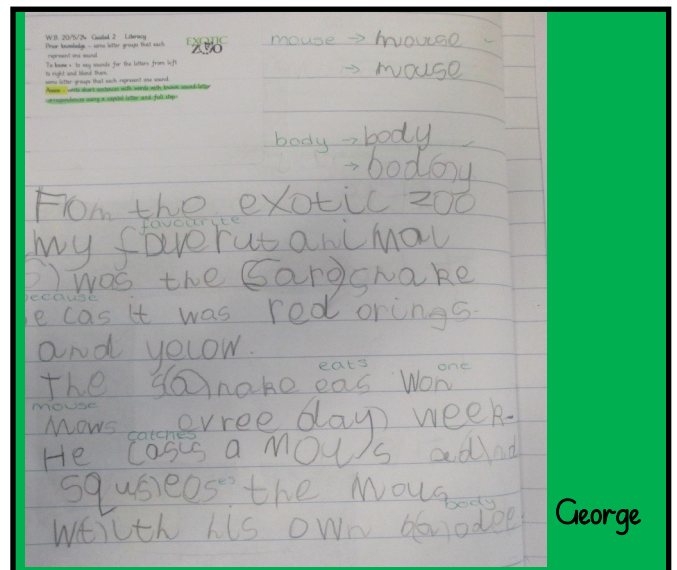 W.B. 20/5/24 Guided 2 Literacy
Prior knowledge - some letter groups that each
represent one sound.
To know - to say sounds for the letters from left
to right and blend them.
some letter groups that each represent one sound.
write short sentences with words with known sound-letter
correspondences using a capital letter and full stop
EXOTIC
ZOO
mouse → mouse
→ mouse
body → body
→ body
From the exotic zoo
favourite
my faverut animal
was the snake
because
e cas it was red orings
and yelow.
eats one
the snake eas Won
mouse
Mows evree day week.
catches
He casis a Mouls and
squsieos the Mous
body
with his own bodee
George